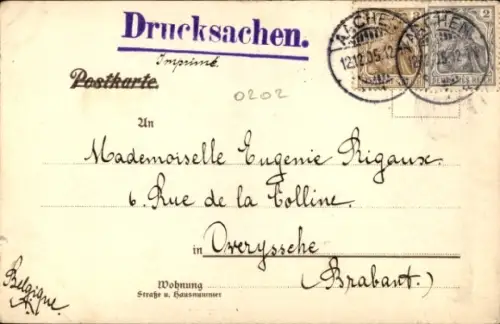 Drucksachen.
Imprimé
Postkarte.
AACHEN
12.12.05.12
AACHEN
2
0202
An
Mademoiselle Eugenie Rigaux.
6. Rue de la Colline.
in Overyssche
(Brabant.)
Belgique
Wohnung
Straße u. Hausnummer